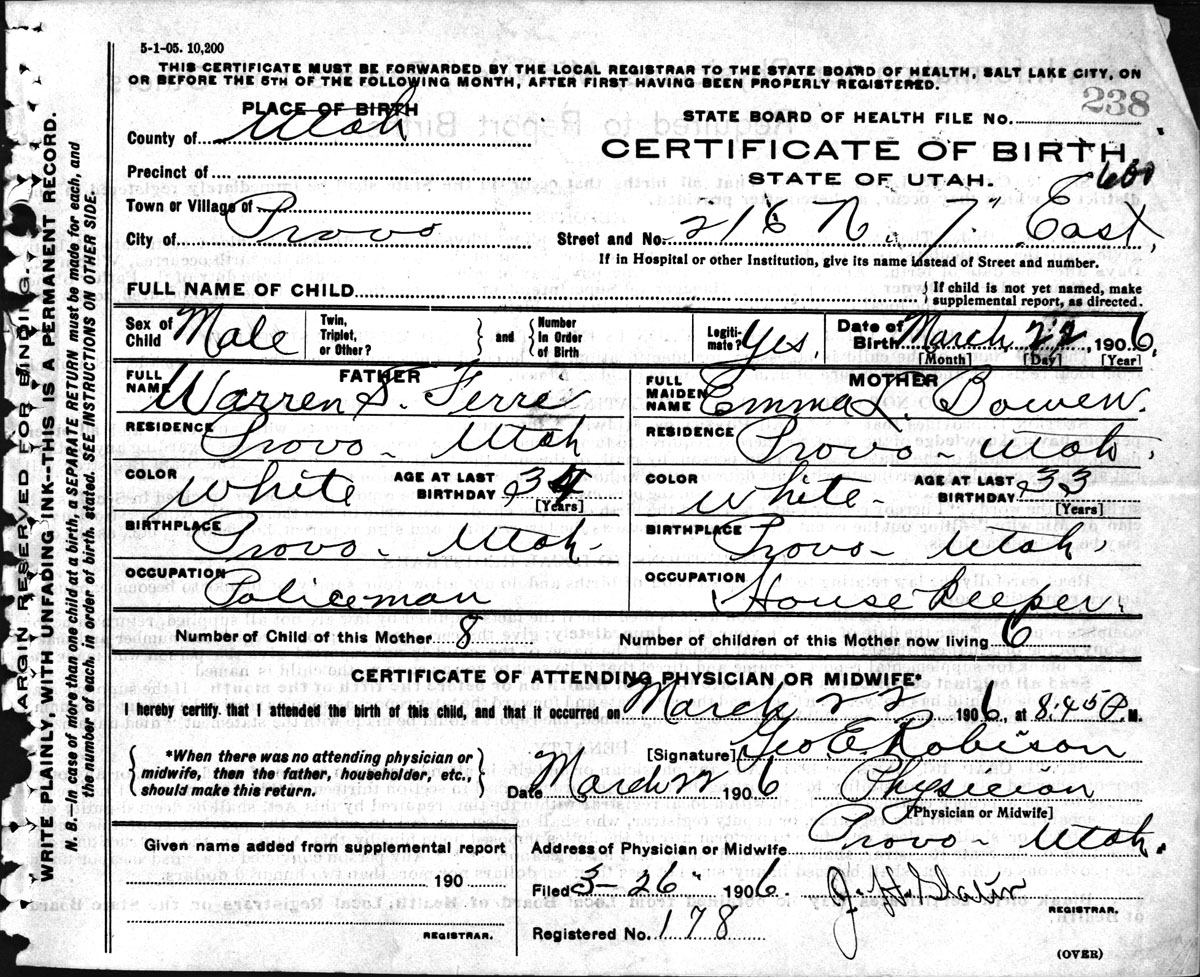 5-1-05. 10,200
THIS CERTIFICATE MUST BE FORWARDED BY THE LOCAL REGISTRAR TO THE STATE BOARD OF HEALTH, SALT LAKE CITY, ON
OR BEFORE THE 5TH OF THE FOLLOWING MONTH, AFTER FIRST HAVING BEEN PROPERLY REGISTERED.
238
PLACE OF BIRTH
STATE BOARD OF HEALTH FILE NO.
County of Utah
CERTIFICATE OF BIRTH
Precinct of
STATE OF UTAH.
600
Town or Village of
City of Provo
Street and No. 216 N. 7" East.
If in Hospital or other Institution, give its name instead of Street and number.
FULL NAME OF CHILD
If child is not yet named, make
supplemental report, as directed.
Sex of Child Male
Twin, Triplet, or Other?
and
Number In Order of Birth
Legiti-mate? Yes.
Date of Birth March 22, 1906.
[Month] [Day] [Year]
FATHER
FULL NAME Warren S. Ferre
RESIDENCE Provo - Utah
COLOR White
AGE AT LAST BIRTHDAY 34
[Years]
BIRTHPLACE Provo - Utah.
OCCUPATION Policeman
MOTHER
FULL MAIDEN NAME Emma L. Bowen.
RESIDENCE Provo - Utah.
COLOR White -
AGE AT LAST BIRTHDAY 33
[Years]
BIRTHPLACE Provo - Utah.
OCCUPATION House Keeper.
Number of Child of this Mother 8
Number of children of this Mother now living 6
CERTIFICATE OF ATTENDING PHYSICIAN OR MIDWIFE*
I hereby certify that I attended the birth of this child, and that it occurred on March 22 1906, at 8:45 P. M.
*When there was no attending physician or
midwife, then the father, householder, etc.,
should make this return.
[Signature] Geo E. Robison
Date March 22 1906
Physician
[Physician or Midwife]
Address of Physician or Midwife Provo - Utah.
Given name added from supplemental report
190
REGISTRAR.
Filed 3-26" 1906.
REGISTRAR.
Registered No. 178
(OVER)
MARGIN RESERVED FOR BINDING.
WRITE PLAINLY, WITH UNFADING INK--THIS IS A PERMANENT RECORD.
N. B.—In case of more than one child at a birth, a SEPARATE RETURN must be made for each, and
the number of each, in order of birth, stated. SEE INSTRUCTIONS ON OTHER SIDE.